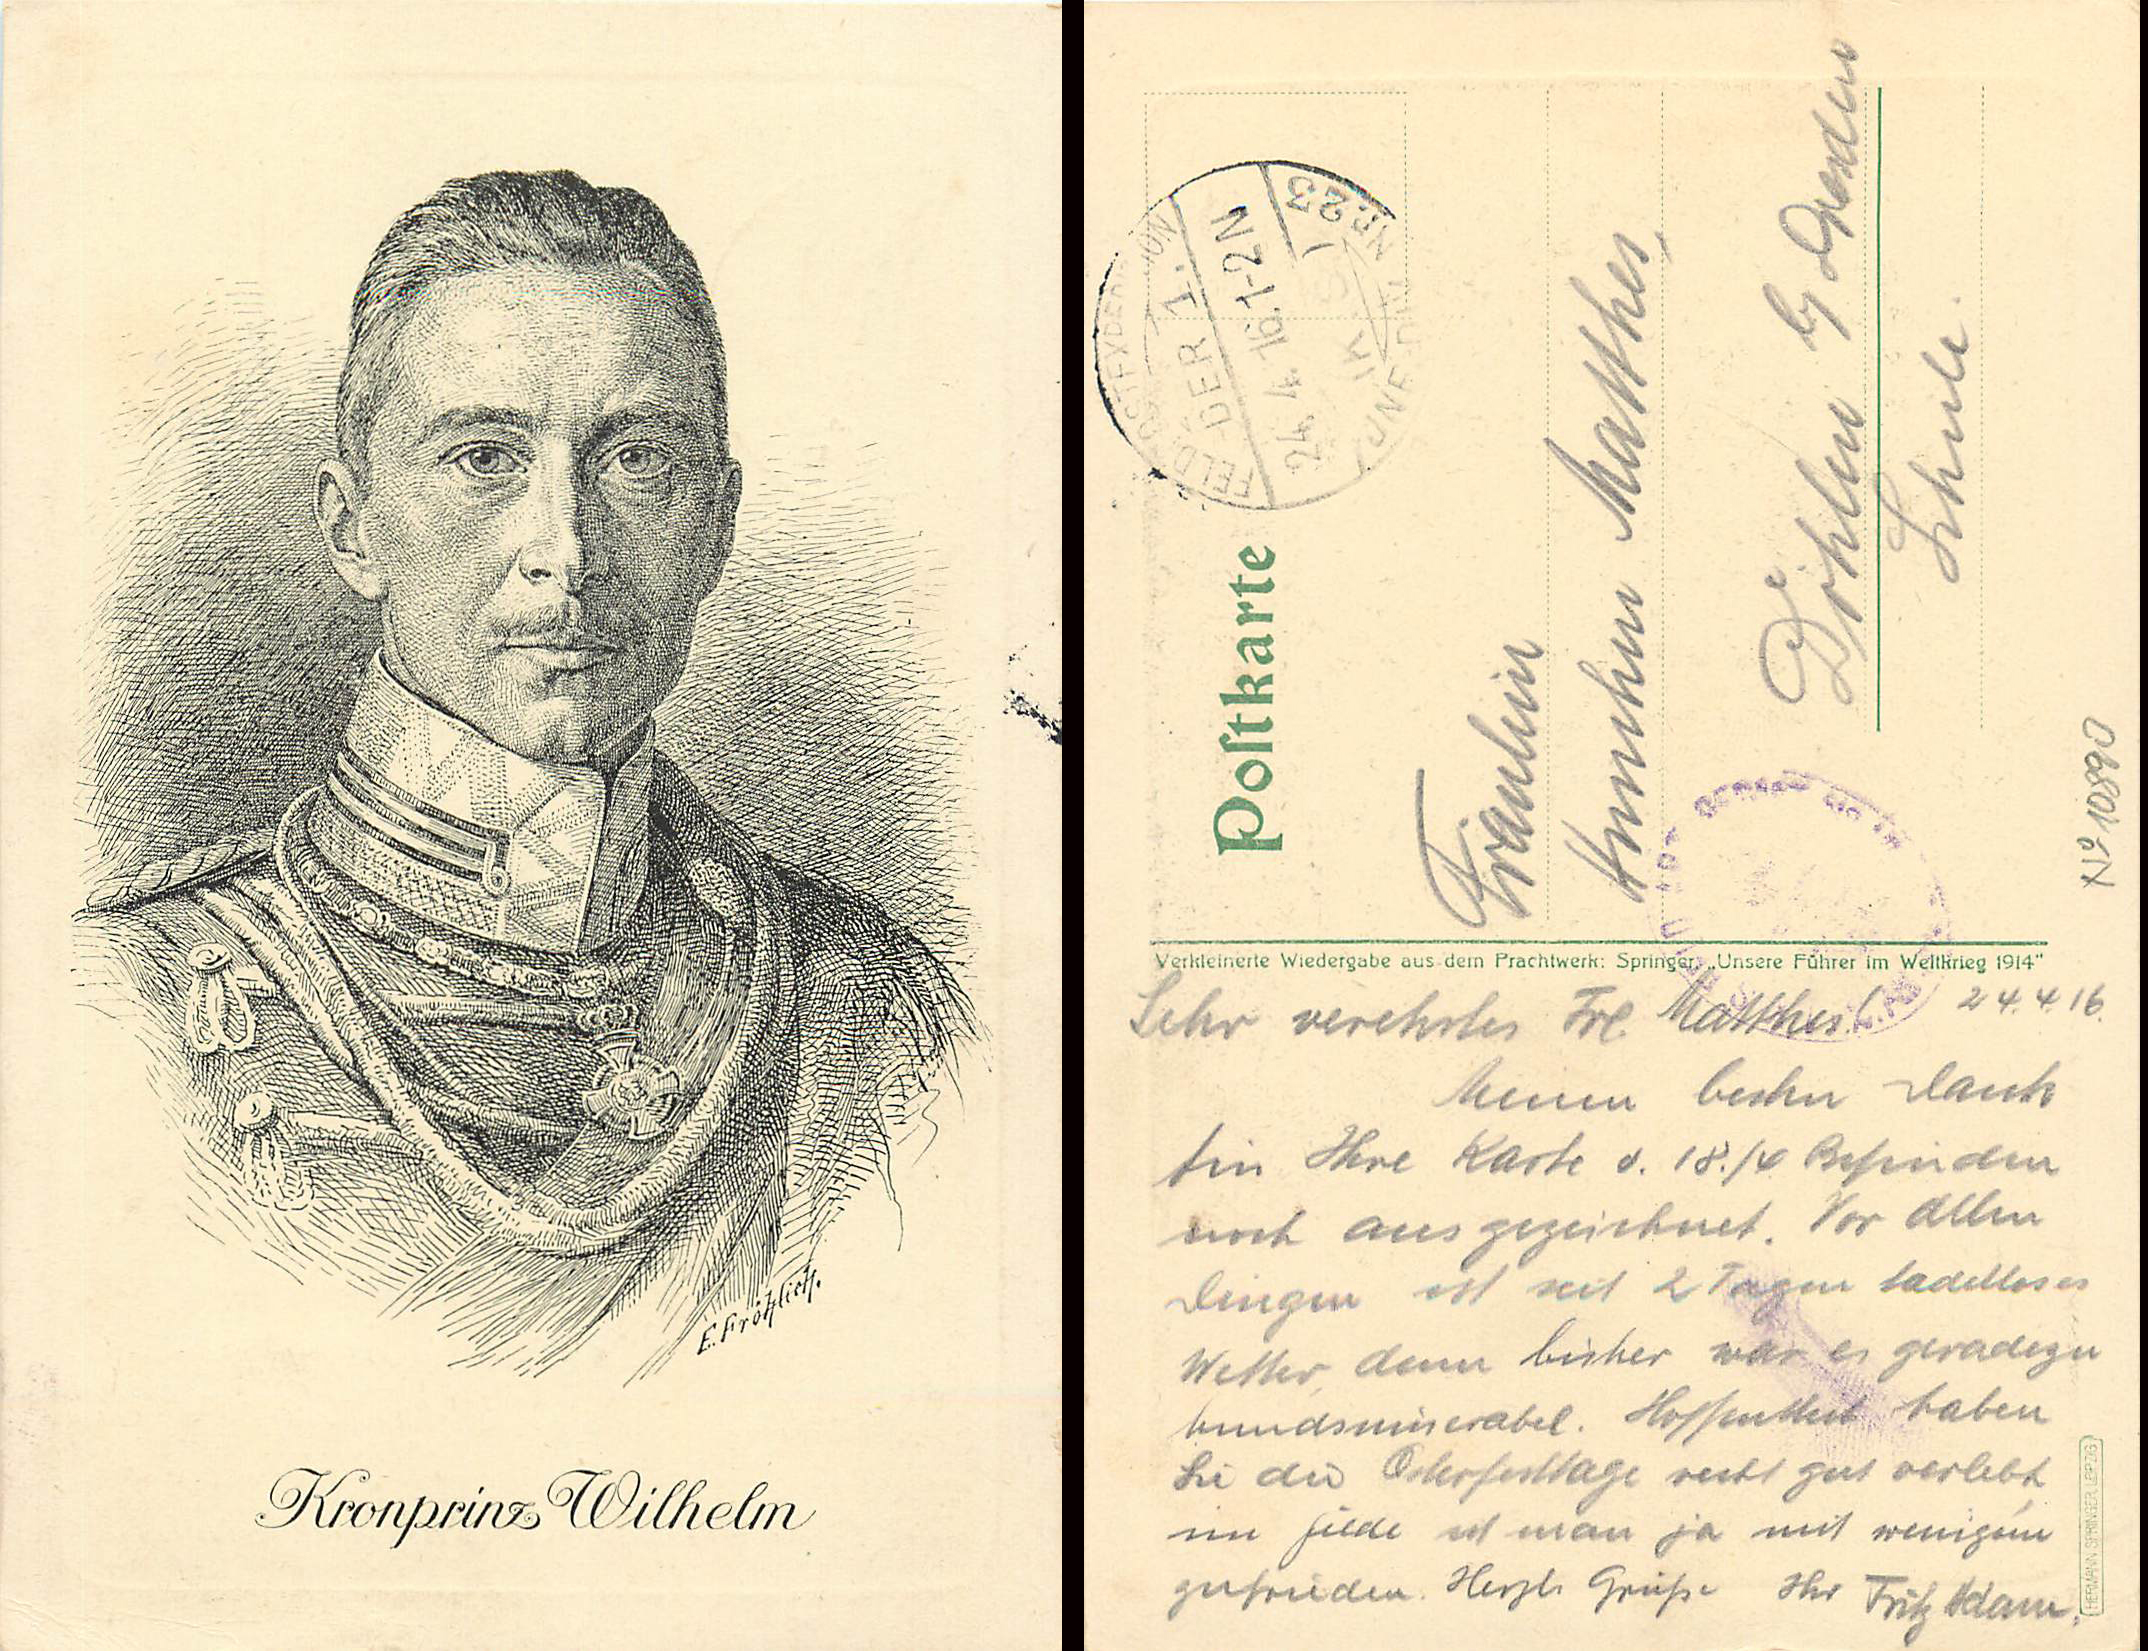 E. Fröhlich.
Kronprinz Wilhelm
FELDPOSTEXPEDITION
DER 1.
24.4.16. 1-2 N
NR. 23
Poſtkarte
Fräulein
Matthes,
Döhlen b/ Dresden
Schule.
No 10890
Verkleinerte Wiedergabe aus dem Prachtwerk: Springer, „Unsere Führer im Weltkrieg 1914"
Sehr verehrtes Frl. Matthes! 24.4.16.
Meinen besten Dank
für Ihre Karte v. 18./4 Befinden
noch ausgezeichnet. Vor allen
Dingen ist seit 2 Tagen tadelloses
Wetter, denn bisher war es geradezu
hundsmiserabel. Hoffentlich haben
Sie die Osterfesttage recht gut verlebt,
im Felde ist man ja mit wenigem
zufrieden. Herzl. Grüße Ihr Fritz Adam.
HERMANN SPRINGER, LEIPZIG